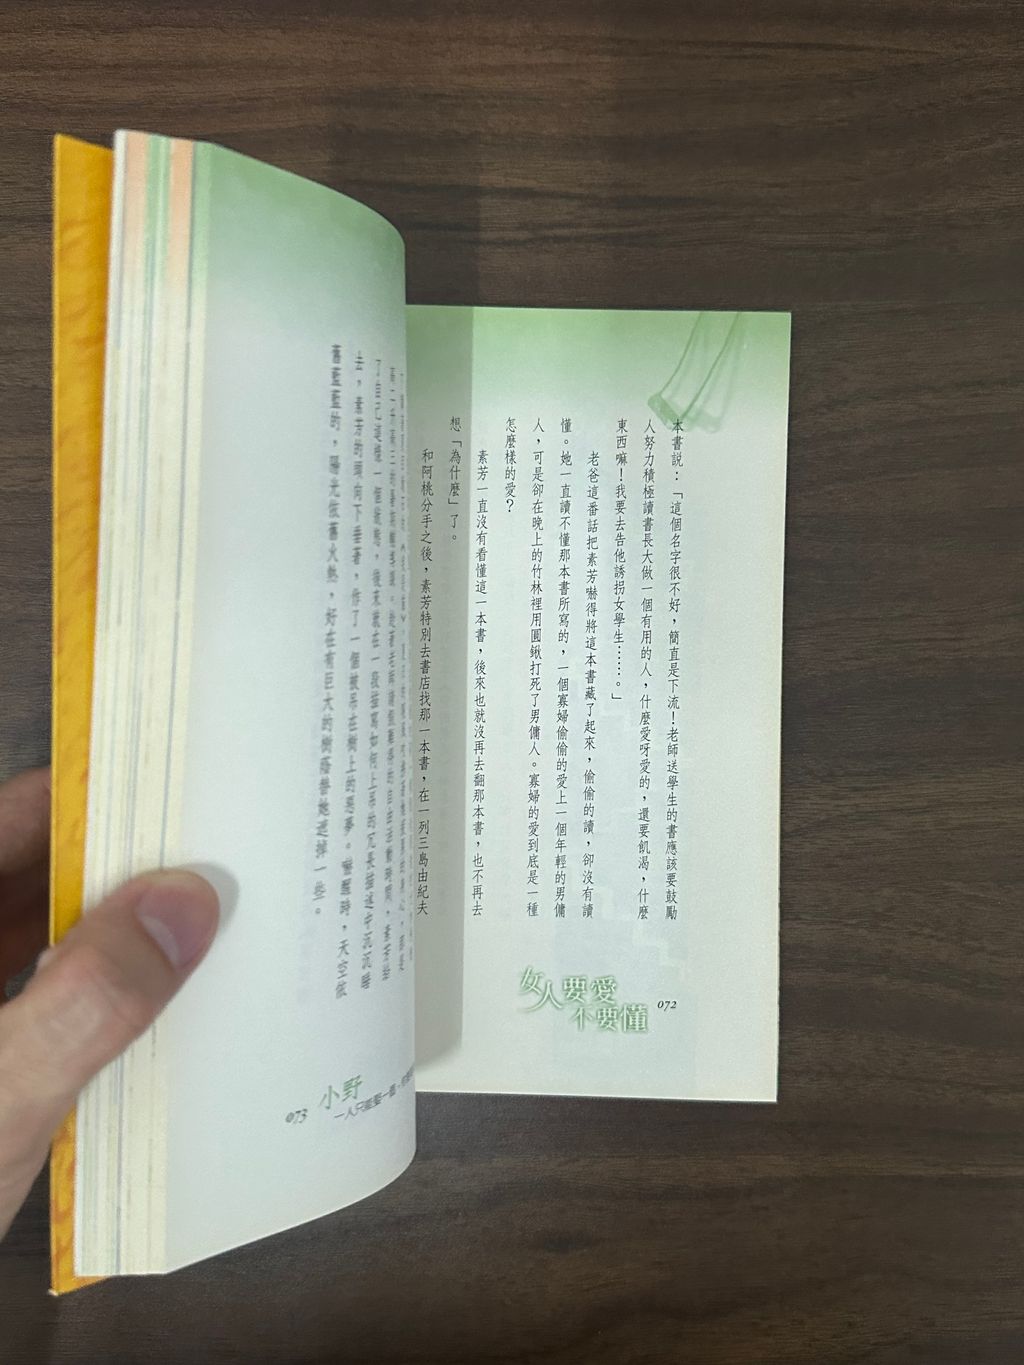 本書說：「這個名字很不好，簡直是下流！老師送學生的書應該要鼓勵
人努力積極讀書長大做一個有用的人，什麼愛呀愛的，還要飢渴，什麼
東西嘛！我要去告他誘拐女學生……。」
老爸這番話把素芳嚇得將這本書藏了起來，偷偷的讀，卻沒有讀
懂。她一直讀不懂那本書所寫的，一個寡婦偷偷的愛上一個年輕的男傭
人，可是卻在晚上的竹林裡用圓鍬打死了男傭人。寡婦的愛到底是一種
怎麼樣的愛？
素芳一直沒有看懂這一本書，後來也就沒再去翻那本書，也不再去
想「為什麼」了。
和阿桃分手之後，素芳特別去書店找那一本書，在一列三島由紀夫
女人要愛
不要懂
072
了自己這樣一個依憑，後來就在一段描寫如何上吊的冗長描述中沉沉睡
去，素芳的頭向下垂著，作了一個被吊在樹上的惡夢。嚇醒時，天空依
舊藍藍的，陽光依舊火熱，好在有巨大的樹蔭替她遮掉一些。
小野
073